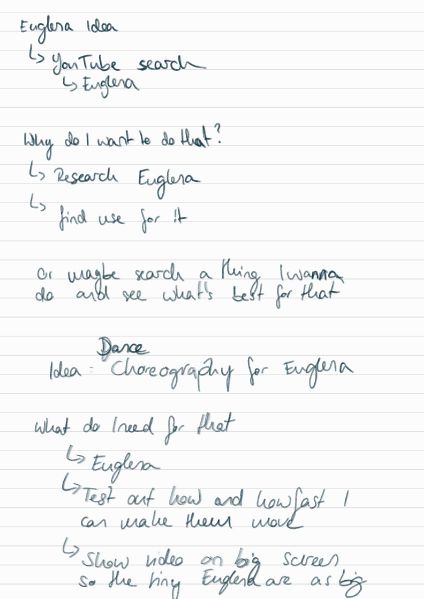 Euglena Idea
↳ YouTube search
↳ Euglena
Why do I want to do that?
↳ Research Euglena
↳ find use for it
Or maybe search a thing I wanna
do and see what's best for that
Dance
Idea: Choreography for Euglena
What do I need for that
↳ Euglena
↳ Test out how and how fast I
can make them move
↳ Show video on big screen
so the tiny Euglena are as big